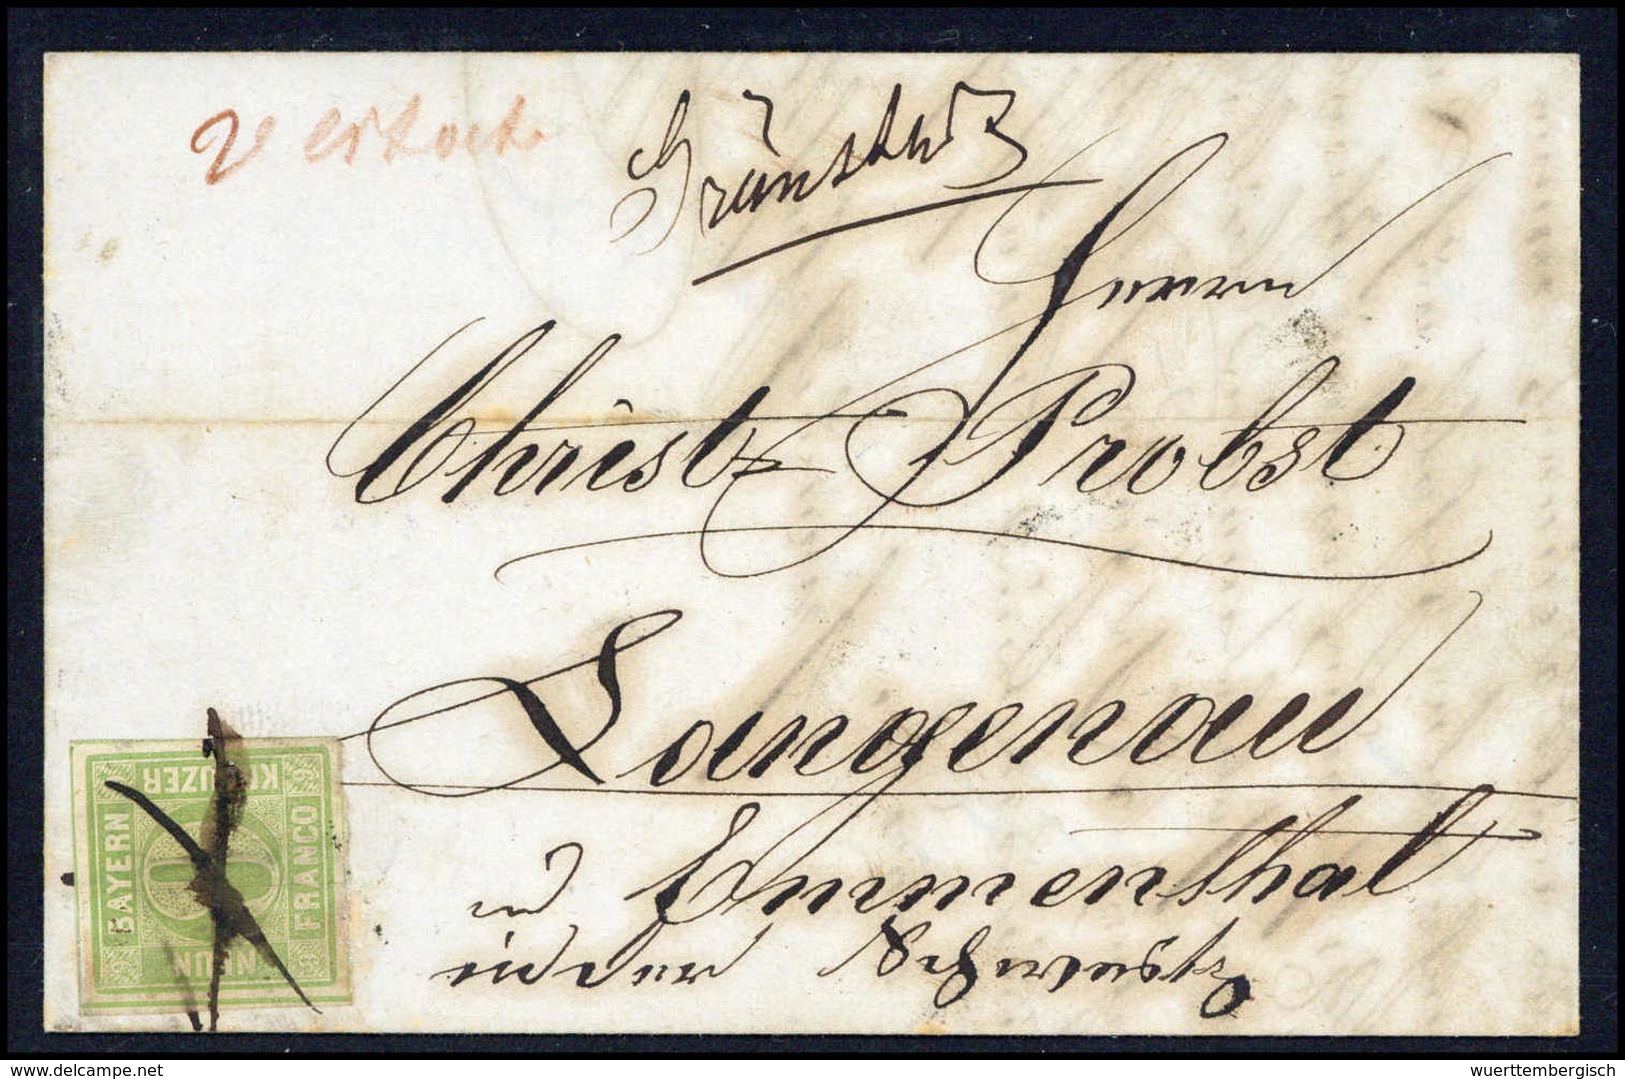 Grünstadt
Herrn
Christ Probst
Langenau
in Emmenthal
in der Schweiz
KREUZER
BAYERN
9
FRANCO
NEUN
www.delcampe.net
wuerttembergisch